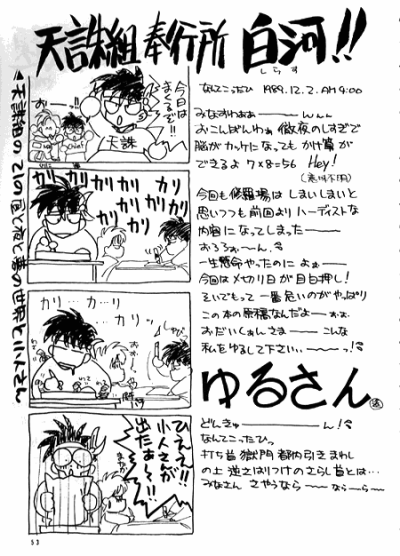 天誅組奉行所 白河!!
しらす
なんてこったひ 1989.12.2.AM4:00
みなすわぁぁーーーんんん
おこんばんわぁ 徹夜のしすぎで
脳がカッテになってもかけ算が
できるよ 7×8=56 Hey!
(意味不明)
今回も修羅場はしまいしまいと
思いつつも前回よりハーディストな
内容になってしまったーーー
おろろぉ〜ん。
一生懸命やったのによぉー
今回はメ切り日が目白押し!
そいでもって一番危いのがやっぱり
この本の原稿なんだよー
おだいじぇんさまーー こんな
私をゆるして下さい、、ーーっ!
ゆるさん
どんきゅーーーん!
なんてこったひっ
打ち首獄門都内引きまわし
の上逆さはりつけのさらし首とは…
みなさん さやうならーーならーらー
今日は
まくるぞ!!
おーーっ!
天誅
Chief
ガリ ガリ ガリ
カリ カリ カリ カリ
カリ カリ
カリ …カ…リ
カリッ
ひえぇ!!
小人さんが
出たぁ〜!!
53